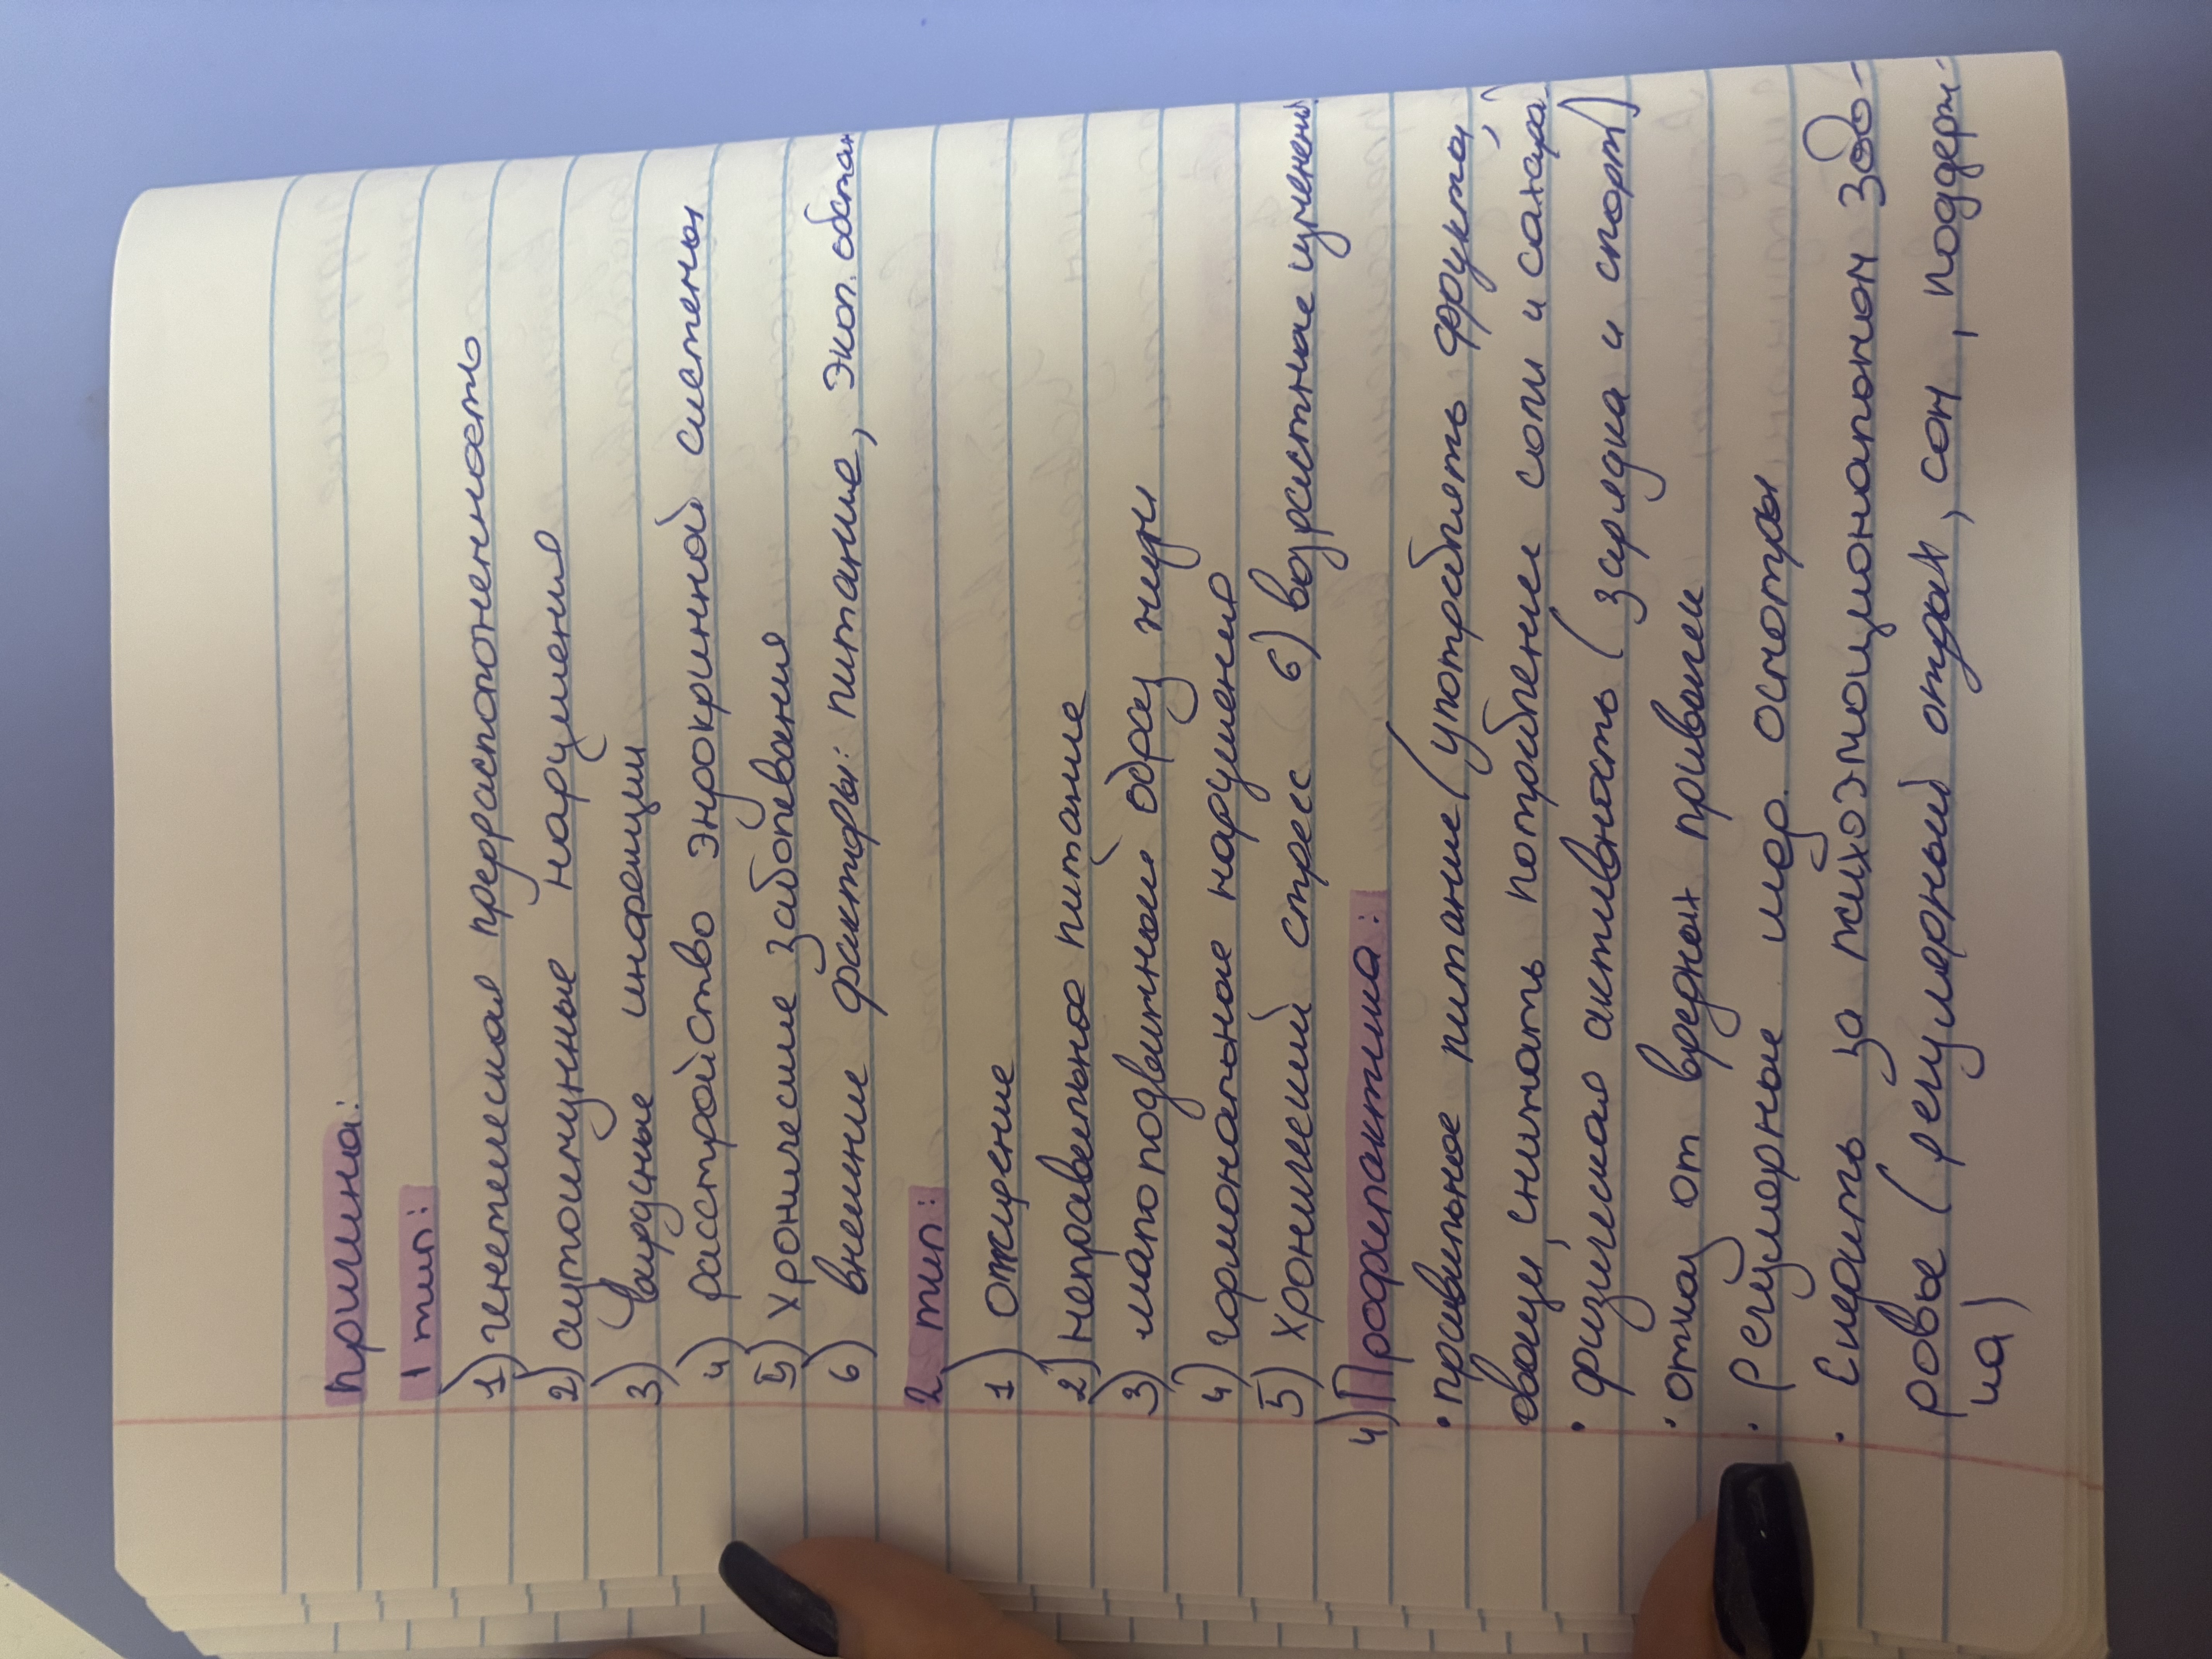 Причина:
1 тип:
1) генетическая предрасположенность
2) аутоимунные нарушения
3) вирусные инфекции
4) расстройство эндокринной системы
5) хронические заболевания
6) внешние факторы: питание, экол. обстан
2 тип:
1) ожирение
2) неправельное питание
3) малоподвижное образ жизни
4) гормональное нарушение
5) хронический стресс 6) возрастные изменения
4) Профилактика:
• правильное питание (употреблять фрукты,
овощи, снижать потребление соли и сахара)
• физическая активность (зарядка и спорт)
• отказ от вредных привычек
• Регулярные мед. осмотры
• Следить за психоэмоциональном здо-
ровье (регулярный отдых, сон, поддерж-
ка)